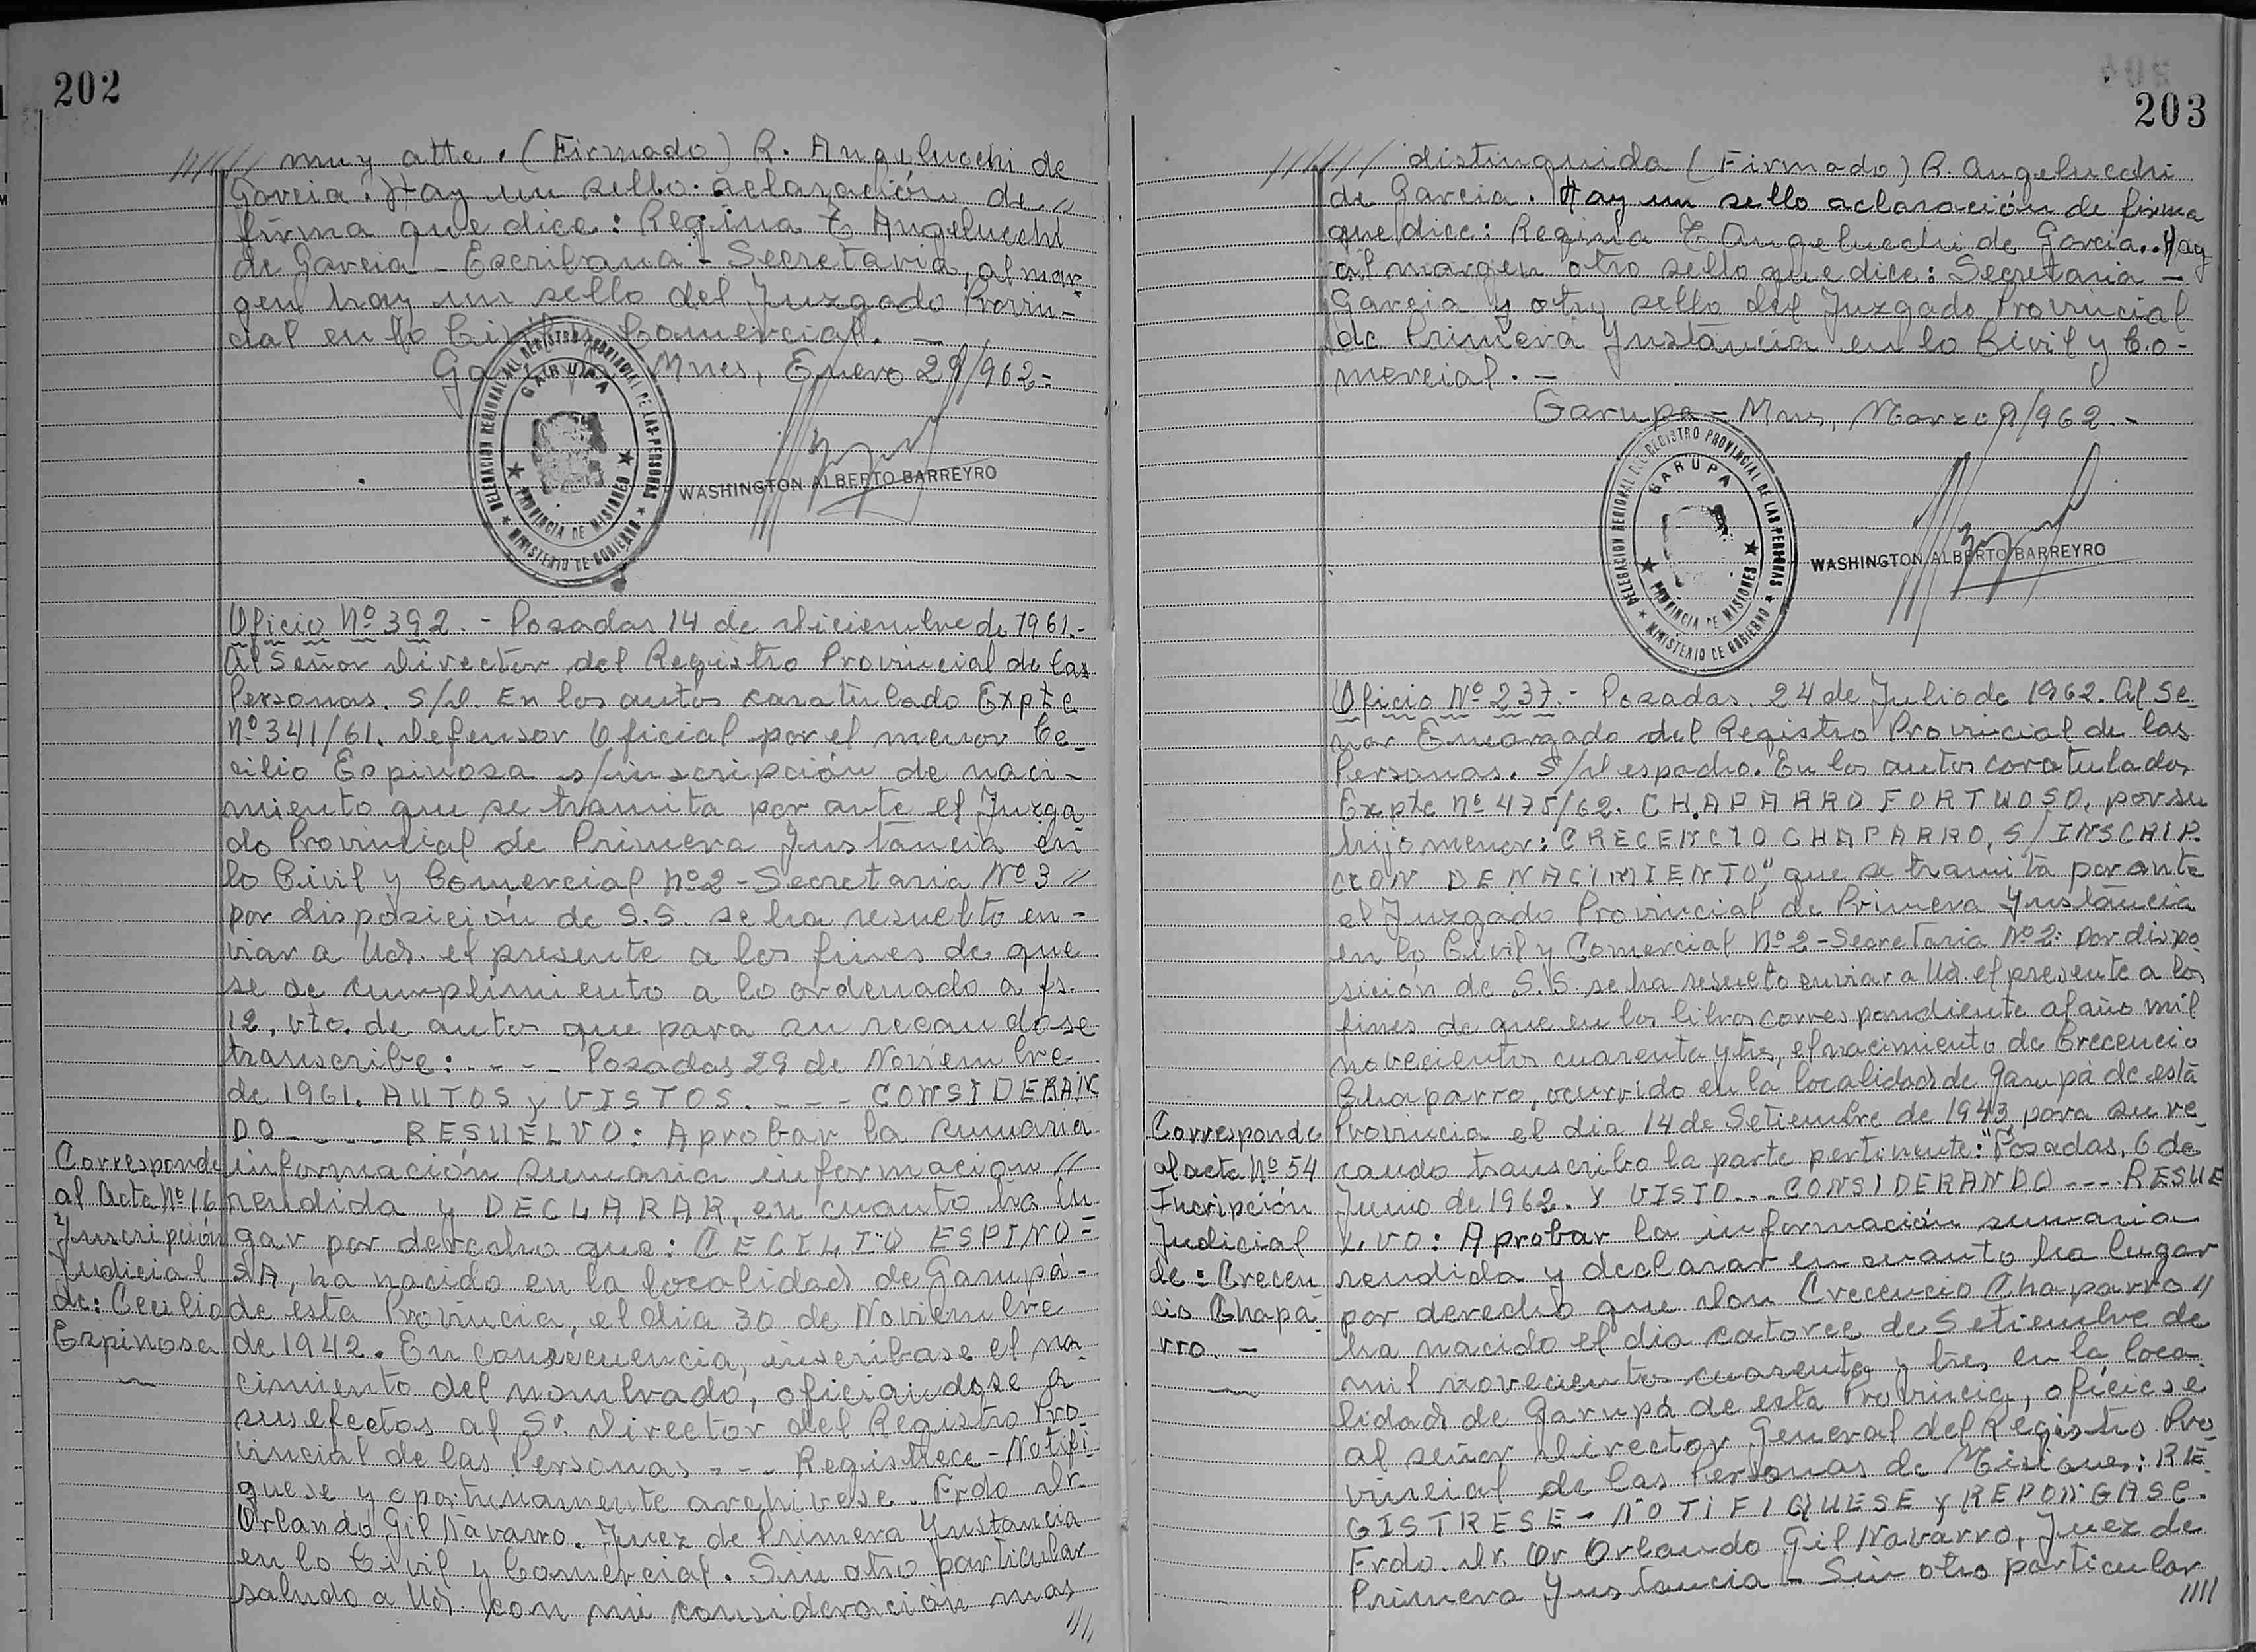 202
////// muy atte. (Firmado) R. Angelucchi de
Garcia. Hay un sello. aclaración de //
firma que dice: Regina E Angelucchi
de Garcia - Escribana - Secretaria, al mar-
gen hay un sello del Juzgado Provin-
cial en lo Civil y Comercial. -
Mnes, Enero 29/962=
DELEGACION REGIONAL DEL REGISTRO PROVINCIAL DE LAS PERSONAS
GARUPA
PROVINCIA DE MISIONES
MINISTERIO DE GOBIERNO
WASHINGTON ALBERTO BARREYRO
Oficio Nº 392. - Posadas 14 de diciembre de 1961.-
Al Señor Director del Registro Provincial de las
Personas. S/D. En los autos caratulado Expte
Nº 341/61. Defensor Oficial por el menor Ce-
cilio Espinosa s/inscripción de naci-
miento que se tramita por ante el Juzga
do Provincial de Primera Instancia en
lo Civil y Comercial Nº 2 - Secretaria Nº 3 //
por disposición de S.S. se ha resuelto en-
viar a Ud. el presente a los fines de que
se de cumplimiento a lo ordenado a fs.
12, vto. de autos que para su recaudose
transcribe: - - - - Posadas 29 de Noviembre
de 1961. AUTOS y VISTOS. - - - CONSIDERAN
DO - - - - RESUELVO: Aprobar la sumaria
información sumaria informacion //
rendida y DECLARAR, en cuanto ha lu
gar por derecho que: CECILIO ESPINO=
SA, ha nacido en la localidad de Garupá-
de esta Provincia, el dia 30 de Noviembre
de 1942. En consecuencia, inscribase el na-
cimiento del nombrado, oficiandose a
sus efectos al Sr. Director del Registro Pro-
vincial de las Personas - - - Registrece - Notifi-
quese y oportunamente archivese. Frdo Dr.
Orlando Gil Navarro. Juez de Primera Instancia
en lo Civil y Comercial. Sin otro particular
saludo a Ud. con mi consideración mas
////
Corresponde
al Acta Nº 16
Inscripción
Judicial
de: Cecilio
Espinosa
203
////// distinguida (Firmado) R. Angelucchi
de Garcia. Hay un sello aclaración de firma
que dice: Regina E Angelucchi de Garcia.. Hay
al margen otro sello que dice: Secretaria -
Garcia y otro sello del Juzgado Provincial
de Primera Instancia en lo Civil y Co-
mercial. -
Garupa - Mns, Marzo 9/962. -
DELEGACION REGIONAL DEL REGISTRO PROVINCIAL DE LAS PERSONAS
GARUPA
PROVINCIA DE MISIONES
MINISTERIO DE GOBIERNO
WASHINGTON ALBERTO BARREYRO
Oficio Nº 237. - Posadas. 24 de Julio de 1962. Al Se-
ñor Encargado del Registro Provincial de las
Personas. S/Despacho. En los autos caratulados
Expte Nº 475/62. CHAPARRO FORTUOSO, por su
hijo menor: CRECENCIO CHAPARRO, S/INSCRIP-
CION DE NACIMIENTO", que se tramita por ante
el Juzgado Provincial de Primera Instancia
en lo Civil y Comercial Nº 2 - Secretaria Nº 2: por dispo
sición de S.S. se ha resuelto enviar a Ud. el presente a los
fines de que en los libros correspondiente al año mil
novecientos cuarenta y tres, el nacimiento de Crecencio
Chaparro, ocurrido en la localidad de Garupá de esta
Provincia el dia 14 de Setiembre de 1943, para su re-
caudo transcribo la parte pertinente: "Posadas, 6 de
Junio de 1962. Y VISTO... CONSIDERANDO ---- RESUE
LVO: Aprobar la información sumaria
rendida y declarar en cuanto ha lugar
por derecho que don Crecencio Chaparro //
ha nacido el dia catorce de Setiembre de
mil novecientos cuarenta y tres en la loca
lidad de Garupá de esta Provincia, ofíciese
al señor Director General del Registro Pro-
vincial de las Personas de Misiones: RE-
GISTRESE - NOTIFIQUESE y REPONGASE.
Frdo. Dr. Or Orlando Gil Navarro, Juez de
Primera Instancia - Sin otro particular
////
Corresponde
al acta Nº 54
Incripción
Judicial
de: Crecen
cio Chapa-
rro. -